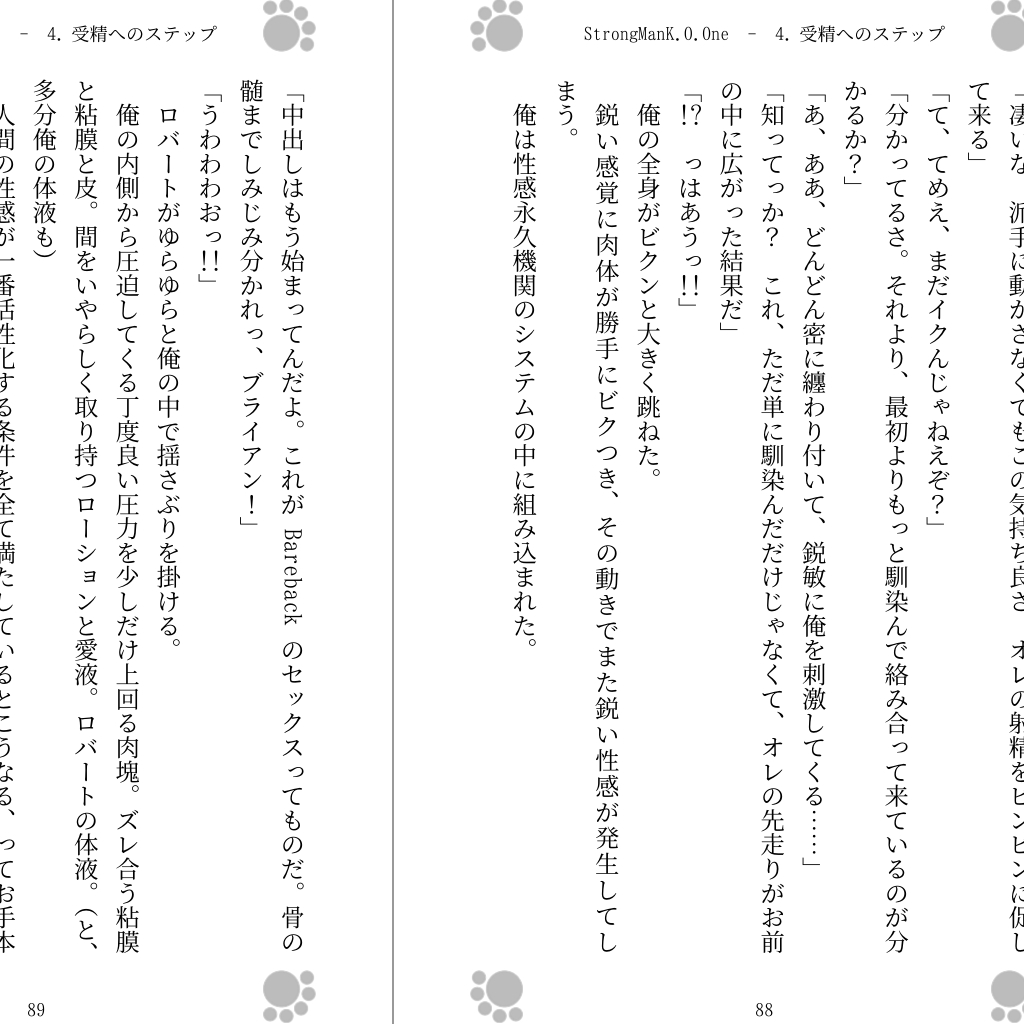 StrongManK.O.One － 4. 受精へのステップ
て来る」
「て、てめえ、まだイクんじゃねえぞ？」
「分かってるさ。それより、最初よりもっと馴染んで絡み合って来ているのが分
かるか？」
「あ、ああ、どんどん密に纏わり付いて、鋭敏に俺を刺激してくる……」
「知ってっか？　これ、ただ単に馴染んだだけじゃなくて、オレの先走りがお前
の中に広がった結果だ」
「!?　っはあうっ!!」
俺の全身がビクンと大きく跳ねた。
鋭い感覚に肉体が勝手にビクつき、その動きでまた鋭い性感が発生してし
まう。
俺は性感永久機関のシステムの中に組み込まれた。
88
－ 4. 受精へのステップ
「中出しはもう始まってんだよ。これが Bareback のセックスってものだ。骨の
髄までしみじみ分かれっ、ブライアン！」
「うわわわおっ!!」
ロバートがゆらゆらと俺の中で揺さぶりを掛ける。
俺の内側から圧迫してくる丁度良い圧力を少しだけ上回る肉塊。ズレ合う粘膜
と粘膜と皮。間をいやらしく取り持つローションと愛液。ロバートの体液。（と、
多分俺の体液も）
89